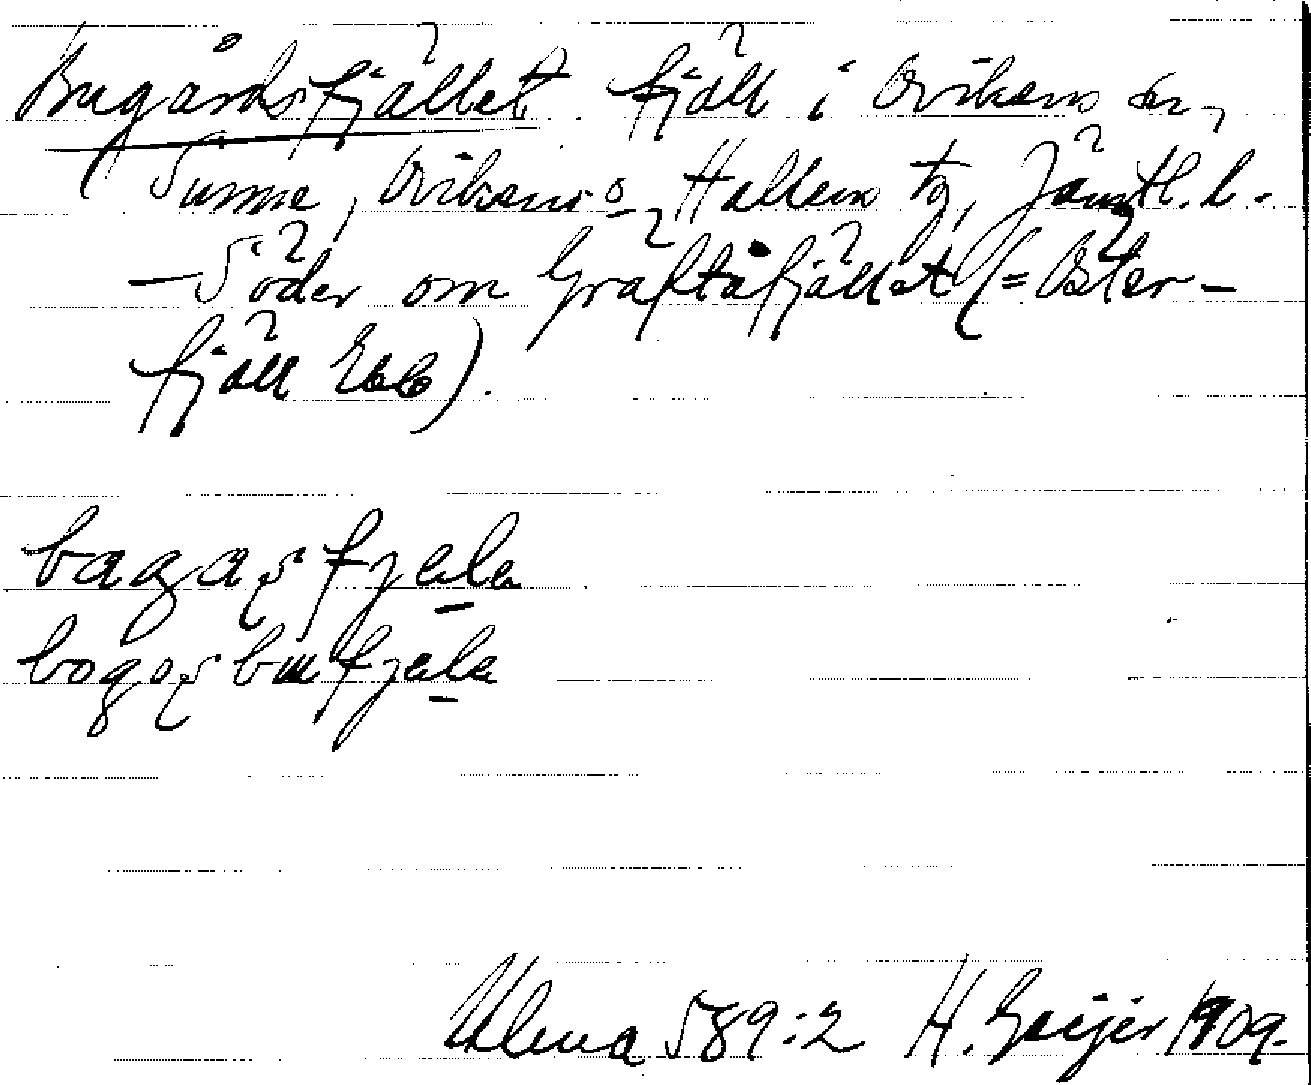 Bugårdsfjället fjäll i Ovikens sn,
Sunne, Ovikens o Hallens tg, Jämtl. l.
— Söder om Gräftåfjället (= Öster-
fjäll Ebb).
bagaṣfjęla
bogoṣbufjęla
Ulma 589:2 H. Geijer 1909.